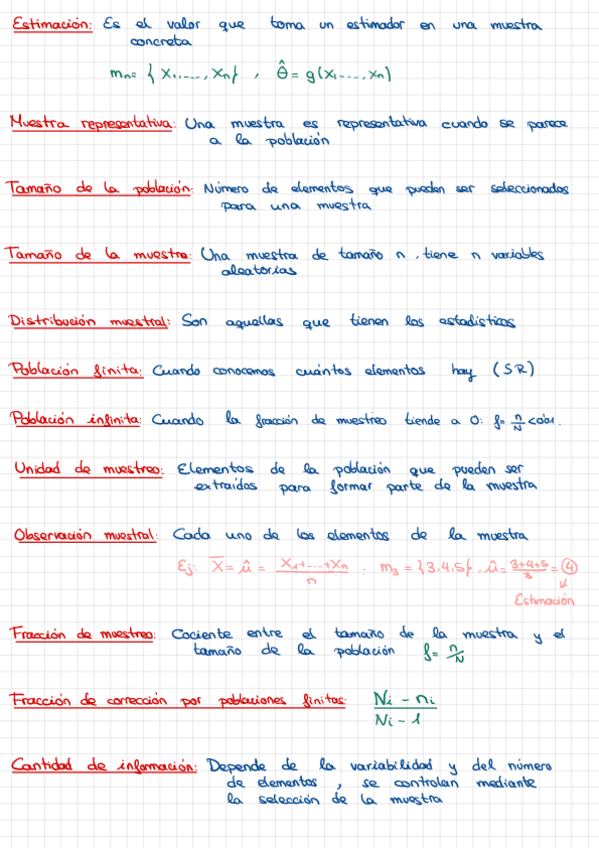 Estimación: Es el valor que toma un estimador en una muestra
concreta
mn= { X1,...., Xn} , θ̂ = g(X1...., Xn)
Muestra representativa: Una muestra es representativa cuando se parece
a la población
Tamaño de la población: Número de elementos que pueden ser seleccionados
para una muestra
Tamaño de la muestra: Una muestra de tamaño n, tiene n variables
aleatorias
Distribución muestral: Son aquellas que tienen los estadísticos
Población finita: Cuando conocemos cuántos elementos hay (SR)
Población infinita: Cuando la fracción de muestreo tiende a 0: f= n/N <0'01.
Unidad de muestreo: Elementos de la población que pueden ser
extraídos para formar parte de la muestra
Observación muestral: Cada uno de los elementos de la muestra
Ej: X̅ = û = X1+...+Xn/n : m3 = {3,4,5}, û= 3+4+5/3 = 4
Estimación
Fracción de muestreo: Cociente entre el tamaño de la muestra y el
tamaño de la población f= n/N
Fracción de corrección por poblaciones finitas: Ni - ni / Ni - 1
Cantidad de información: Depende de la variabilidad y del número
de elementos , se controlan mediante
la selección de la muestra